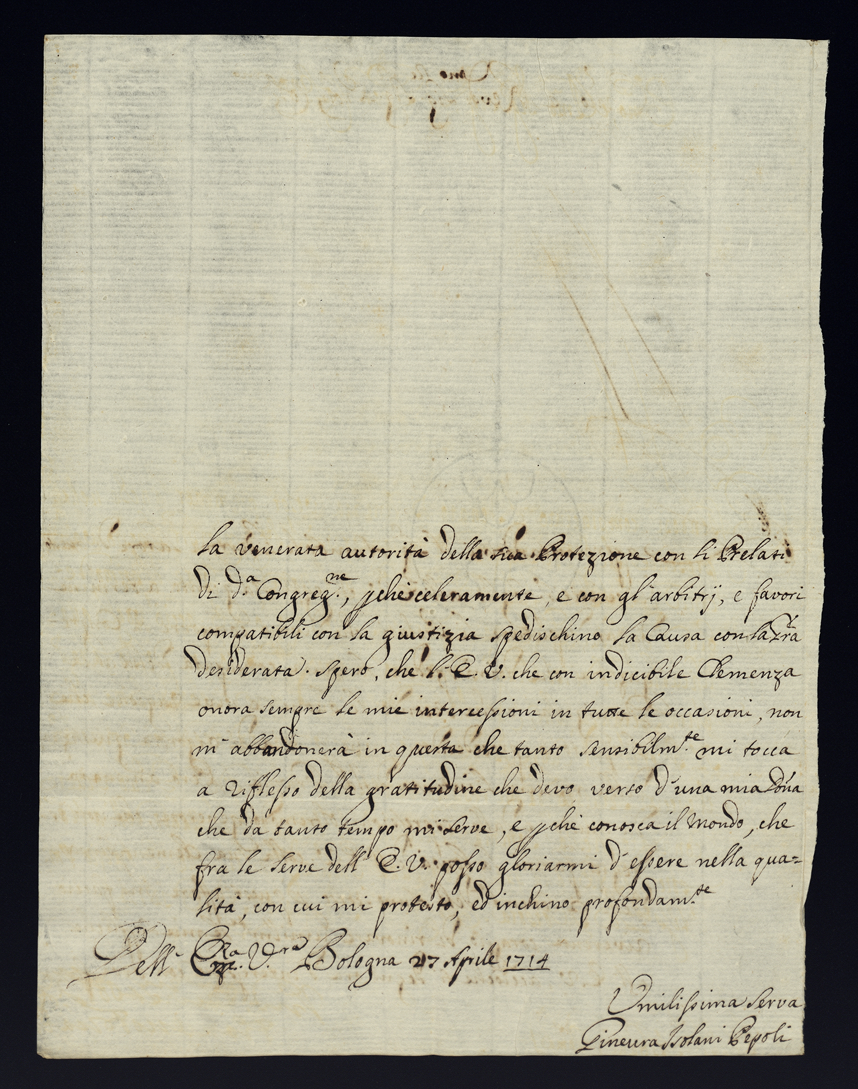 la venerata autorità della sua Protezione con li Prelati
di d.a Congreg.ne, pchè celeramente, e con gl'arbitrj, e favori
compatibili con la giustizia spedischino la Causa con la
desiderata. Spero, che l'E.V. che con indicibile Clemenza
onora sempre le mie intercessioni in tutte le occasioni, non
m'abbandonerà in questa che tanto sensibilm.te mi tocca
a riflesso della gratitudine che devo verso d'una mia
che da tanto tempo mi serve, e pchè conosca il Mondo, che
fra le serve dell'E.V. posso gloriarmi d'essere nella qua-
lità, con cui mi protesto, ed inchino profondam.te
Dell' V.ra Bologna 27 Aprile 1714
Umilissima Serva
Ginevra Isolani Pepoli